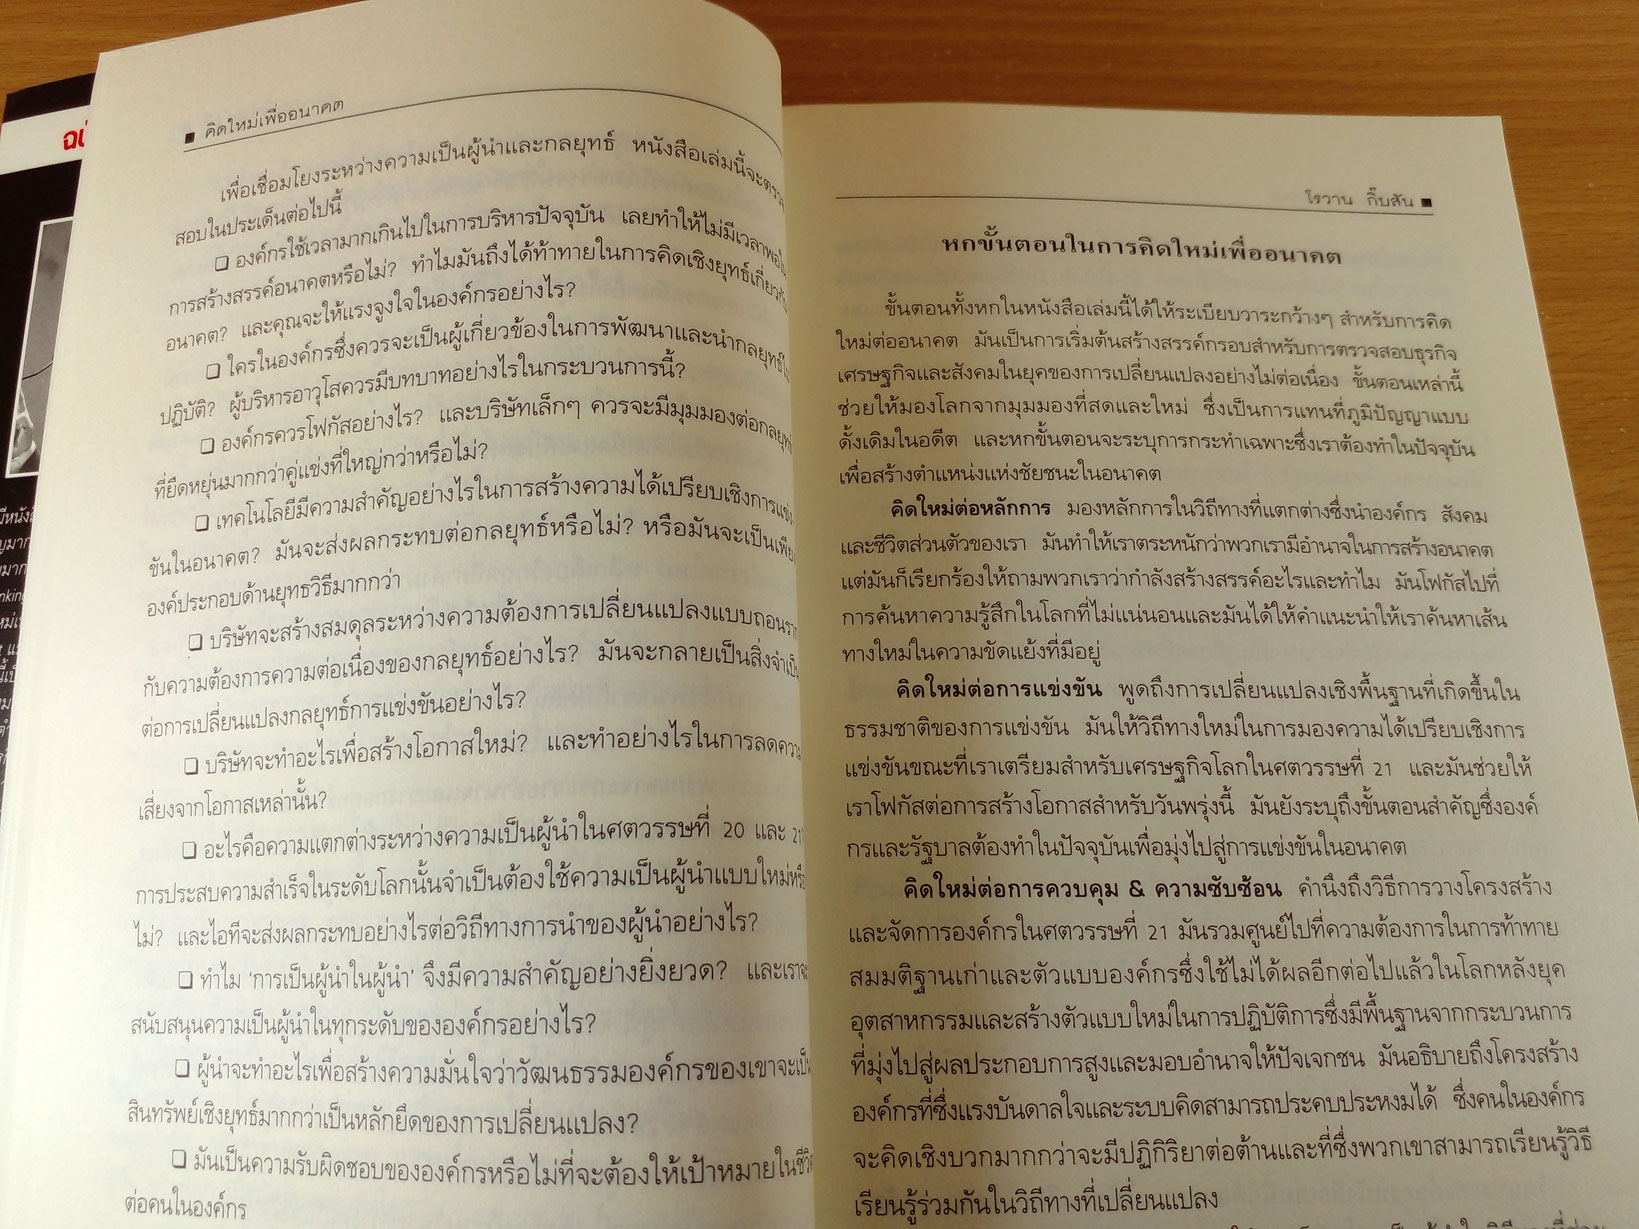 คิดใหม่เพื่ออนาคต
เพื่อเชื่อมโยงระหว่างความเป็นผู้นำและกลยุทธ์ หนังสือเล่มนี้จะตรวจ
สอบในประเด็นต่อไปนี้
❑ องค์กรใช้เวลามากเกินไปในการบริหารปัจจุบัน เลยทำให้ไม่มีเวลาพอใน
การสร้างสรรค์อนาคตหรือไม่? ทำไมมันถึงได้ท้าทายในการคิดเชิงยุทธ์เกี่ยวกับ
อนาคต? และคุณจะให้แรงจูงใจในองค์กรอย่างไร?
❑ ใครในองค์กรซึ่งควรจะเป็นผู้เกี่ยวข้องในการพัฒนาและนำกลยุทธ์ไป
ปฏิบัติ? ผู้บริหารอาวุโสควรมีบทบาทอย่างไรในกระบวนการนี้?
❑ องค์กรควรโฟกัสอย่างไร? และบริษัทเล็กๆ ควรจะมีมุมมองต่อกลยุทธ์
ที่ยืดหยุ่นมากกว่าคู่แข่งที่ใหญ่กว่าหรือไม่?
❑ เทคโนโลยีมีความสำคัญอย่างไรในการสร้างความได้เปรียบเชิงการแข่ง
ขันในอนาคต? มันจะส่งผลกระทบต่อกลยุทธ์หรือไม่? หรือมันจะเป็นเพียง
องค์ประกอบด้านยุทธวิธีมากกว่า
❑ บริษัทจะสร้างสมดุลระหว่างความต้องการเปลี่ยนแปลงแบบถอนราก
กับความต้องการความต่อเนื่องของกลยุทธ์อย่างไร? มันจะกลายเป็นสิ่งจำเป็น
ต่อการเปลี่ยนแปลงกลยุทธ์การแข่งขันอย่างไร?
❑ บริษัทจะทำอะไรเพื่อสร้างโอกาสใหม่? และทำอย่างไรในการลดความ
เสี่ยงจากโอกาสเหล่านั้น?
❑ อะไรคือความแตกต่างระหว่างความเป็นผู้นำในศตวรรษที่ 20 และ 21
การประสบความสำเร็จในระดับโลกนั้นจำเป็นต้องใช้ความเป็นผู้นำแบบใหม่หรือ
ไม่? และไอทีจะส่งผลกระทบอย่างไรต่อวิถีทางการนำของผู้นำอย่างไร?
❑ ทำไม 'การเป็นผู้นำในผู้นำ' จึงมีความสำคัญอย่างยิ่งยวด? และเราจะ
สนับสนุนความเป็นผู้นำในทุกระดับขององค์กรอย่างไร?
❑ ผู้นำจะทำอะไรเพื่อสร้างความมั่นใจว่าวัฒนธรรมองค์กรของเขาจะเป็น
สินทรัพย์เชิงยุทธ์มากกว่าเป็นหลักยึดของการเปลี่ยนแปลง?
❑ มันเป็นความรับผิดชอบขององค์กรหรือไม่ที่จะต้องให้เป้าหมายในชีวิต
ต่อคนในองค์กร
โรวาน กิ๊บสัน
หกขั้นตอนในการคิดใหม่เพื่ออนาคต
ขั้นตอนทั้งหกในหนังสือเล่มนี้ได้ให้ระเบียบวาระกว้างๆ สำหรับการคิด
ใหม่ต่ออนาคต มันเป็นการเริ่มต้นสร้างสรรค์กรอบสำหรับการตรวจสอบธุรกิจ
เศรษฐกิจและสังคมในยุคของการเปลี่ยนแปลงอย่างไม่ต่อเนื่อง ขั้นตอนเหล่านี้
ช่วยให้มองโลกจากมุมมองที่สดและใหม่ ซึ่งเป็นการแทนที่ภูมิปัญญาแบบ
ดั้งเดิมในอดีต และหกขั้นตอนจะระบุการกระทำเฉพาะซึ่งเราต้องทำในปัจจุบัน
เพื่อสร้างตำแหน่งแห่งชัยชนะในอนาคต
คิดใหม่ต่อหลักการ มองหลักการในวิถีทางที่แตกต่างซึ่งนำองค์กร สังคม
และชีวิตส่วนตัวของเรา มันทำให้เราตระหนักว่าพวกเรามีอำนาจในการสร้างอนาคต
แต่มันก็เรียกร้องให้ถามพวกเราว่ากำลังสร้างสรรค์อะไรและทำไม มันโฟกัสไปที่
การค้นหาความรู้สึกในโลกที่ไม่แน่นอนและมันได้ให้คำแนะนำให้เราค้นหาเส้น
ทางใหม่ในความขัดแย้งที่มีอยู่
คิดใหม่ต่อการแข่งขัน พูดถึงการเปลี่ยนแปลงเชิงพื้นฐานที่เกิดขึ้นใน
ธรรมชาติของการแข่งขัน มันให้วิถีทางใหม่ในการมองความได้เปรียบเชิงการ
แข่งขันขณะที่เราเตรียมสำหรับเศรษฐกิจโลกในศตวรรษที่ 21 และมันช่วยให้
เราโฟกัสต่อการสร้างโอกาสสำหรับวันพรุ่งนี้ มันยังระบุถึงขั้นตอนสำคัญซึ่งองค์
กรและรัฐบาลต้องทำในปัจจุบันเพื่อมุ่งไปสู่การแข่งขันในอนาคต
คิดใหม่ต่อการควบคุม & ความซับซ้อน คำนึงถึงวิธีการวางโครงสร้าง
และจัดการองค์กรในศตวรรษที่ 21 มันรวมศูนย์ไปที่ความต้องการในการท้าทาย
สมมติฐานเก่าและตัวแบบองค์กรซึ่งใช้ไม่ได้ผลอีกต่อไปแล้วในโลกหลังยุค
อุตสาหกรรมและสร้างตัวแบบใหม่ในการปฏิบัติการซึ่งมีพื้นฐานจากกระบวนการ
ที่มุ่งไปสู่ผลประกอบการสูงและมอบอำนาจให้ปัจเจกชน มันอธิบายถึงโครงสร้าง
องค์กรที่ซึ่งแรงบันดาลใจและระบบคิดสามารถประคบประหงมได้ ซึ่งคนในองค์กร
จะคิดเชิงบวกมากกว่าจะมีปฏิกิริยาต่อต้านและที่ซึ่งพวกเขาสามารถเรียนรู้วิธี
เรียนรู้ร่วมกันในวิถีทางที่เปลี่ยนแปลง